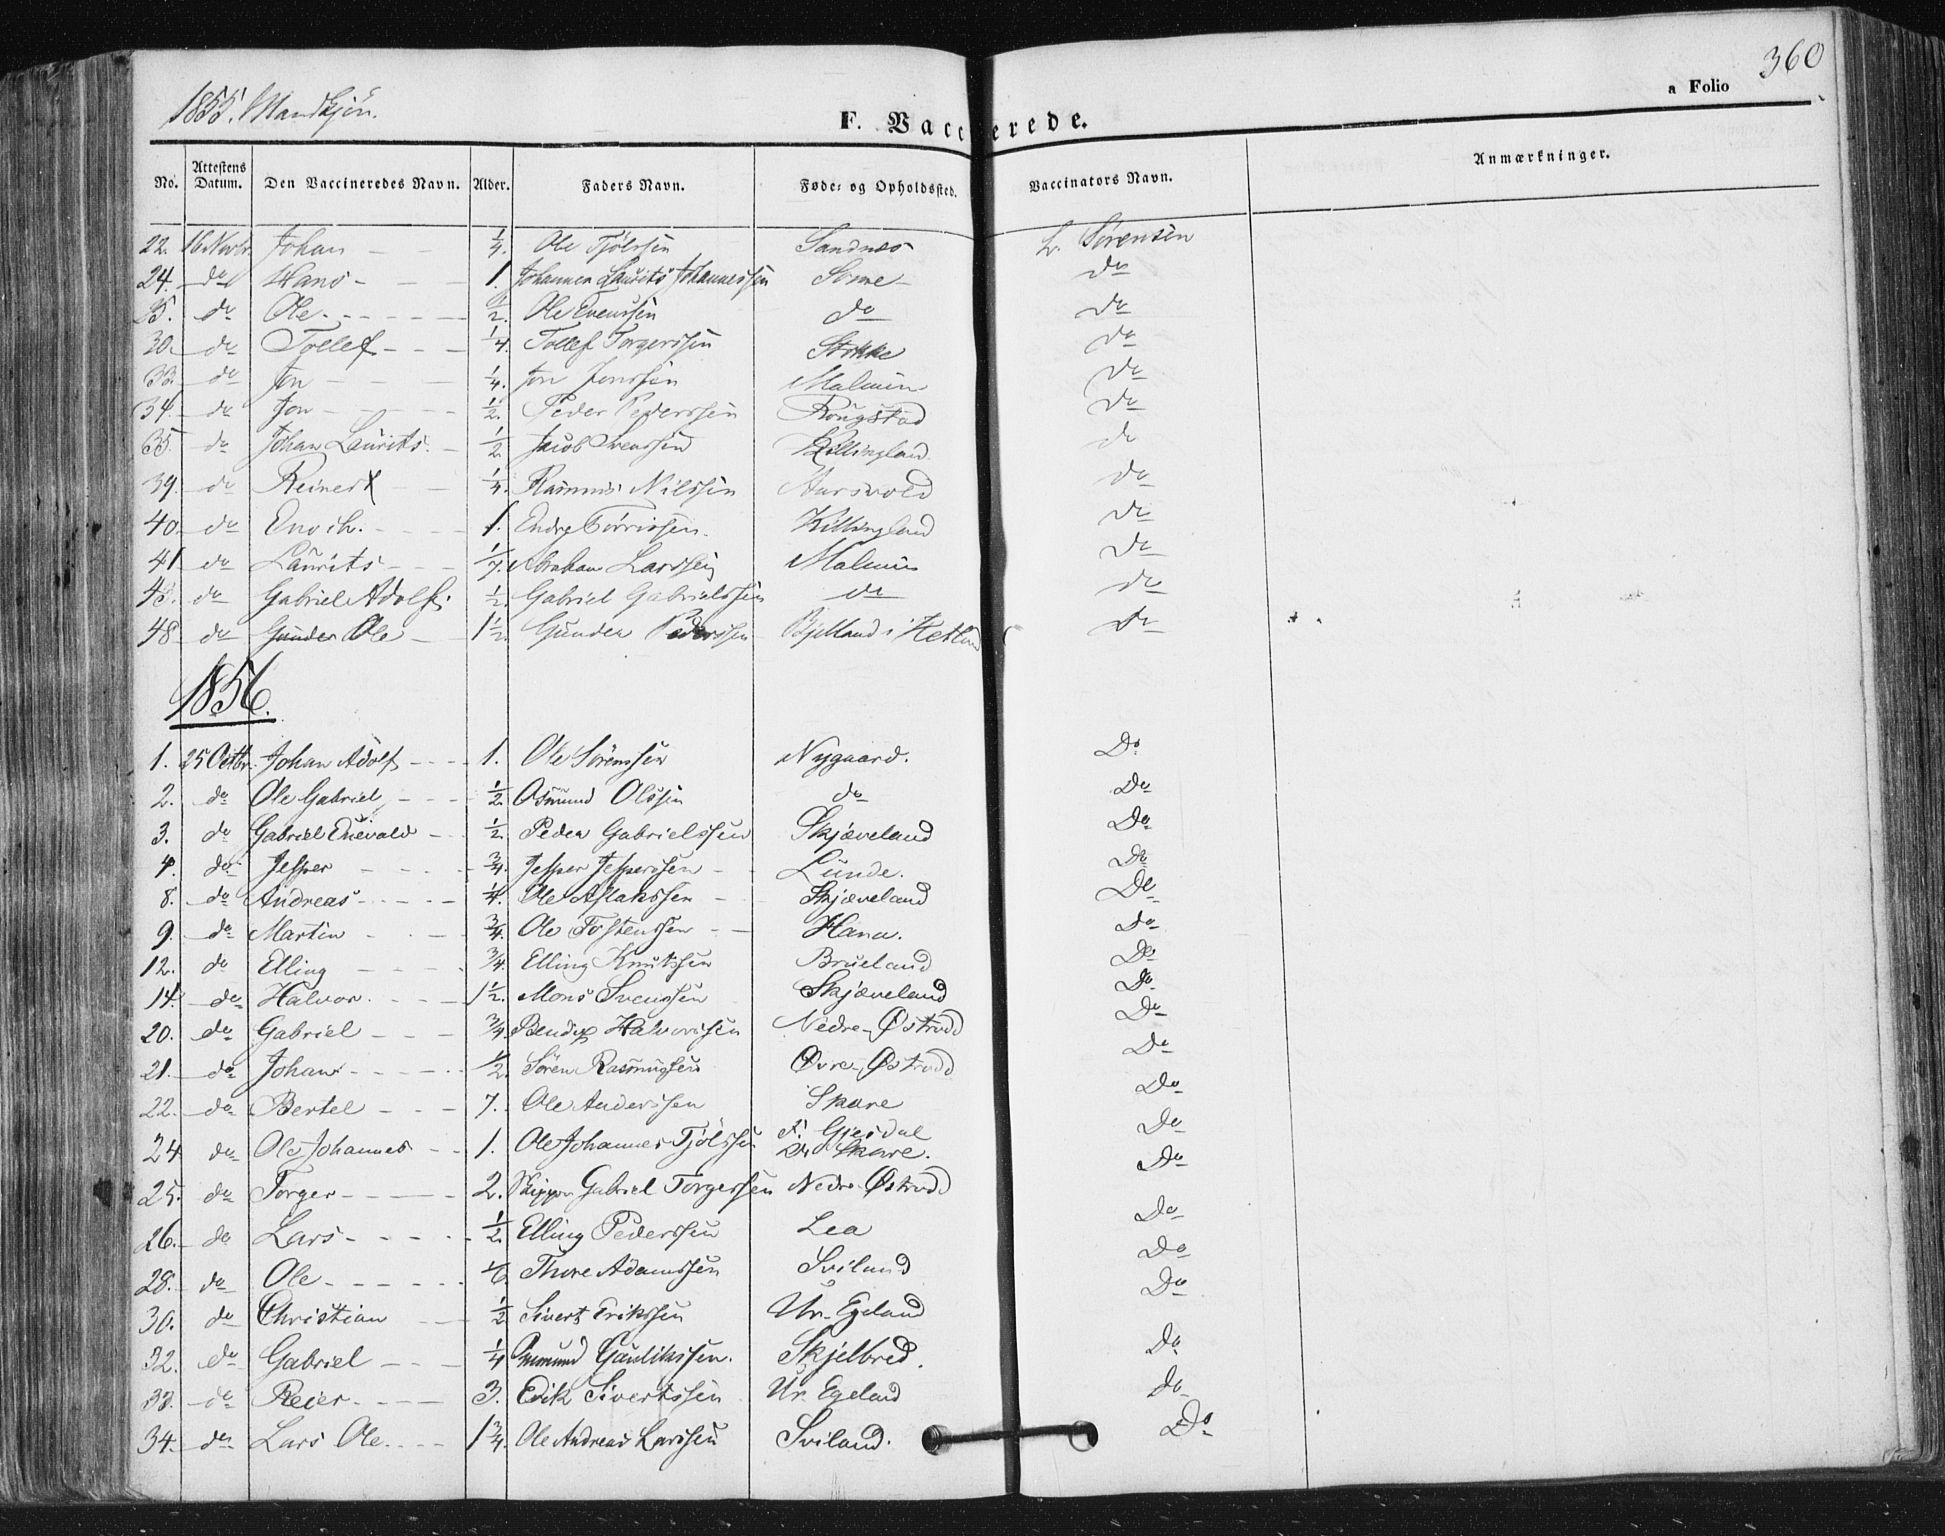 360
1855. Mandkjön.
a Folio
F. Vaccinerede.
No. Attestens Datum. Den Vaccineredes Navn. Alder. Faders Navn. Føde- og Opholdssted. Vaccinators Navn. Anmærkninger.
22. 16 Novbr Johan 1/4. Ole Tjölssen Sandnes L. Sörensen
24. do Hans 1. Johannes Laurits Johannessen Somme do
25. do Ole 1/2. Ole Evenssen do do
30. do Tollef 1/4. Tollef Torgerssen Stokke do
33. do Jon 1/4. Jon Jonssen Malmin do
34. do Jon 1/2. Peder Pederssen Rougstad do
35. do Johan Laurits. 1/2 Jacob Svenssen Killingland do
39. do Reinert 1/4. Rasmus Nilssen Aarsvold do
40. do Enoch. 1. Endre Torrissen. Killingland do
41 do Laurits 1/7. Abraham Larssen Malmin do
45. do Gabriel Adolf 1/2. Gabriel Gabrielssen do do
48 do Gunder Ole 1 1/2. Gunder Pederssen Bjelland i Hetland Do
1856.
1. 25 Octbr. Johan Adolf 1. Ole Sörenssen Nygaard. Do
2. do Ole Gabriel 1/2. Osmund Olssen do Do
3. do Gabriel Enevald 1/2. Peder Gabrielssen Skjæveland Do
4. do Jesper 3/4. Jesper Jesperssen Lunde. Do
8. do Andreas 1/4. Ole Aslakssen Skjæveland Do
9. do Martin 3/4. Ole Tostenssen Hana. Do
12. do Elling 3/4. Elling Knutssen Brueland Do
14. do Halvor. 1 1/2. Mons Svenssen Skjæveland Do
20. do Gabriel 3/4 Bendix Halvorssen Nedre-Østradd Do
21. do Johan 1/2. Sören Rasmussen Øvre-Østradd Do
22. do Bertel 7. Ole Anderssen Skare Do
24 do Ole Johannes 1. Ole Johannes Tjölssen F. Gjesdal Do
Skare.
25. do Torger 2. Skipper Gabriel Torgerssen Nedre Østradd Do
26. do Lars 1/2. Elling Pederssen Lea Do
28. do Ole 1/6. Thore Adamssen Sviland Do
30. do Christian 1/2 Sivert Erikssen Ur. Egeland Do
32. do Gabriel 1/4 Gautikssen. Skjelbred. Do
33. do Reier 3. Erik Sivertssen Ur. Egeland do
34. do Lars Ole 1 3/4. Ole Andreas Larssen Sviland. Do